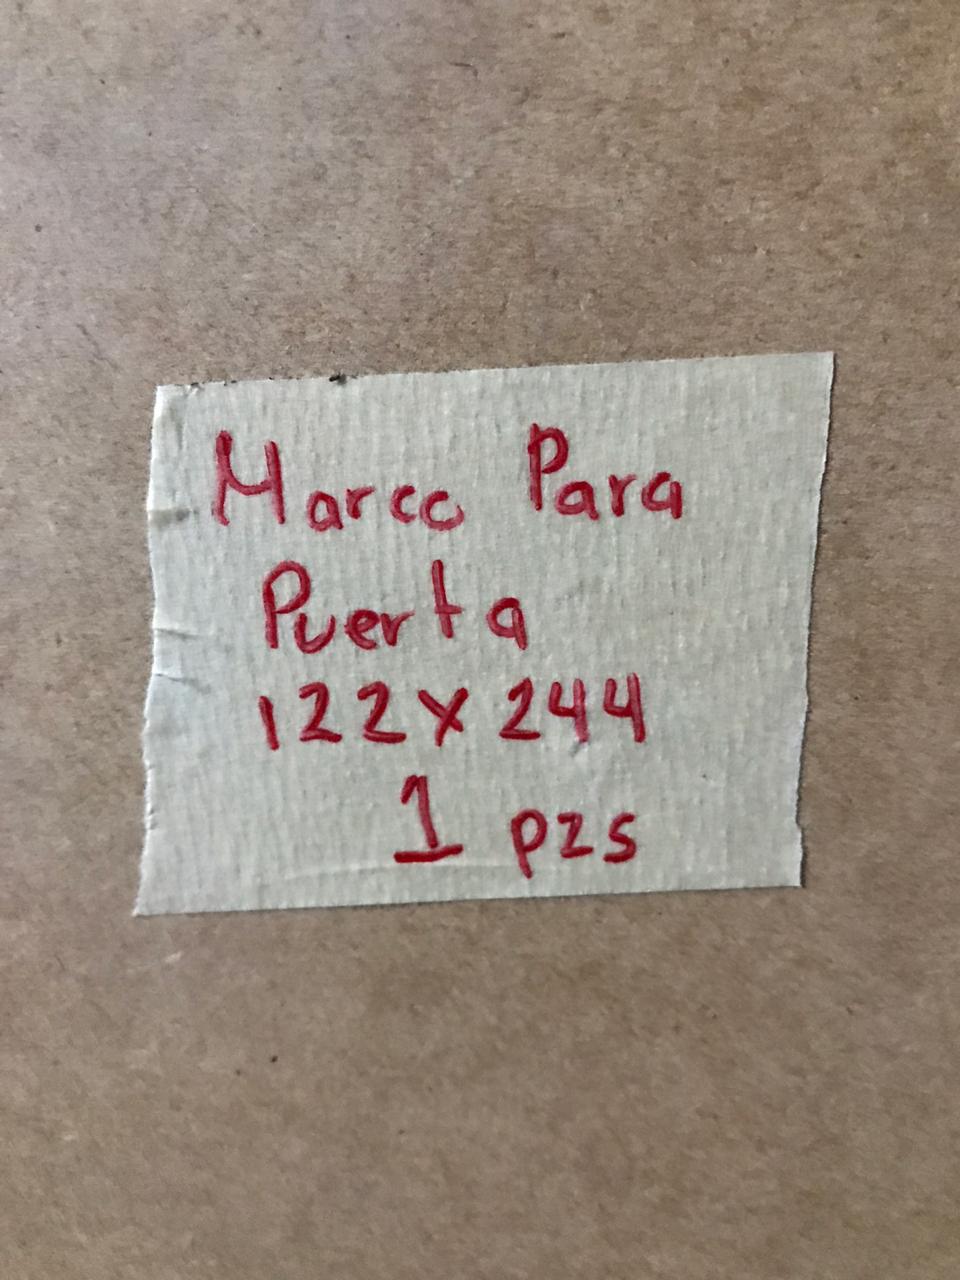 Marco Para
Puerta
122 x 244
1 pzs